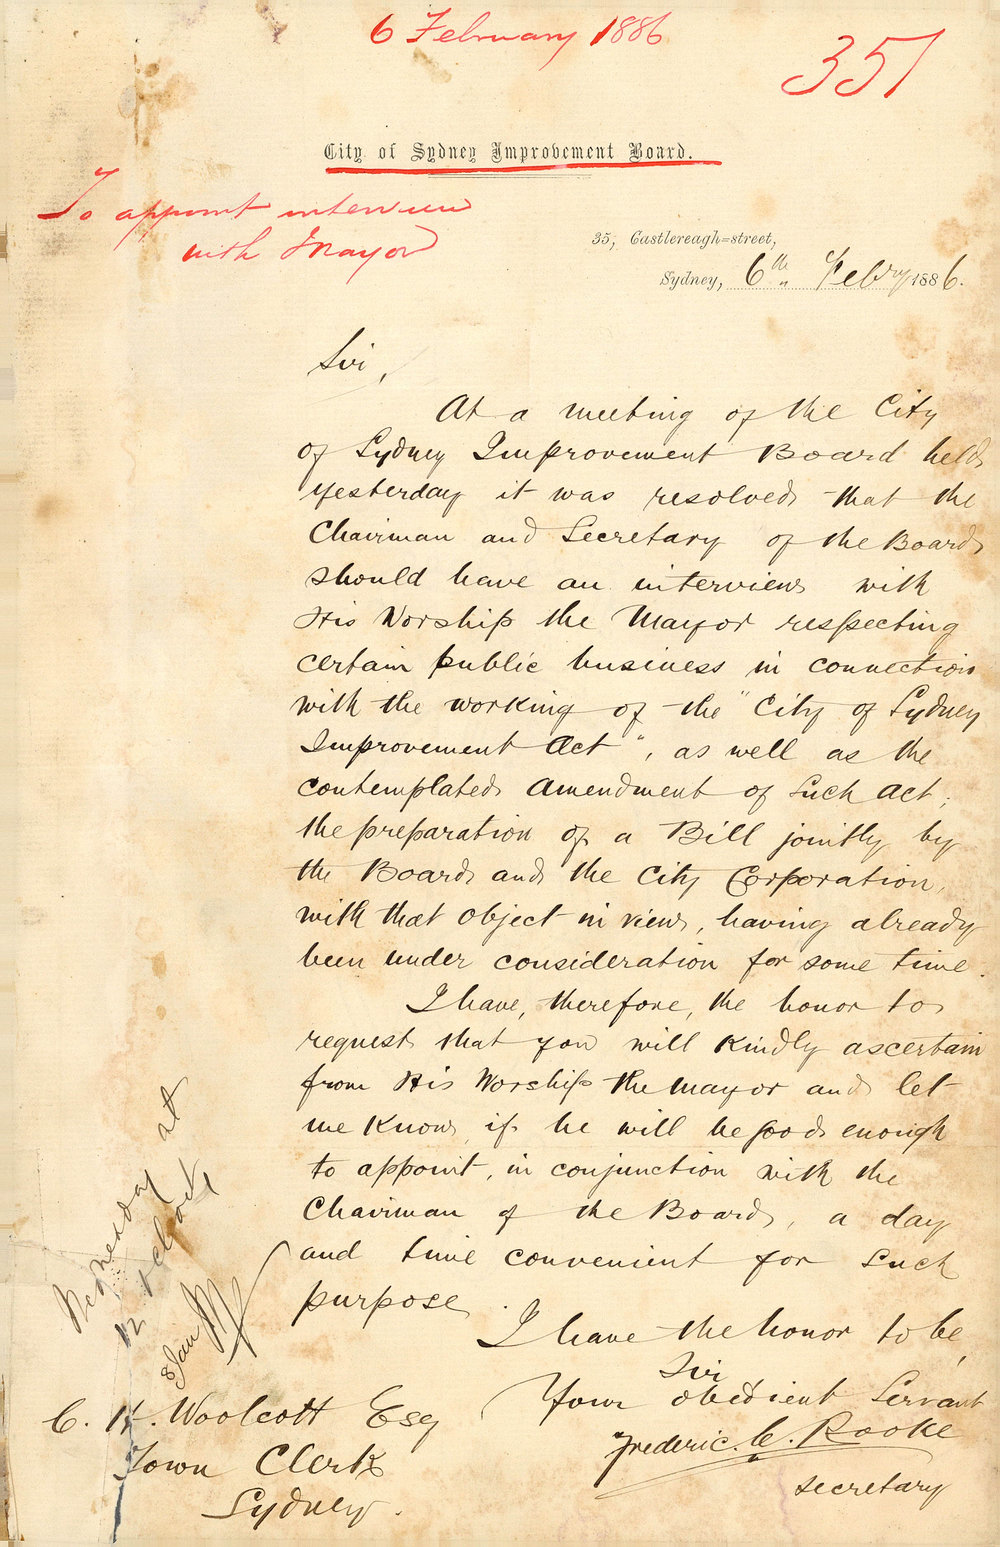 6 February 1886
351
City of Sydney Improvement Board.
To appoint interview
with Mayor
35, Castlereagh=street,
Sydney, 6th Febry 1886.
Sir,
At a meeting of the City
of Sydney Improvement Board held
yesterday it was resolved that the
Chairman and Secretary of the Board
should have an interview with
His Worship the Mayor respecting
certain public business in connection
with the working of the "City of Sydney
Improvement Act", as well as the
contemplated Amendment of such Act;
the preparation of a Bill jointly by
the Board and the City Corporation,
with that object in view, having already
been under consideration for some time.
I have, therefore, the honor to
request that you will kindly ascertain
from His Worship the Mayor and let
me know if he will be good enough
to appoint, in conjunction with the
Chairman of the Board, a day
and time convenient for such
purpose.
I have the honor to be,
Sir
Your obedient Servant
Frederic. C. Rooke
Secretary
Wednesday at
12 o'clock
8 Jan
C. H. Woolcott Esq
Town Clerk
Sydney.